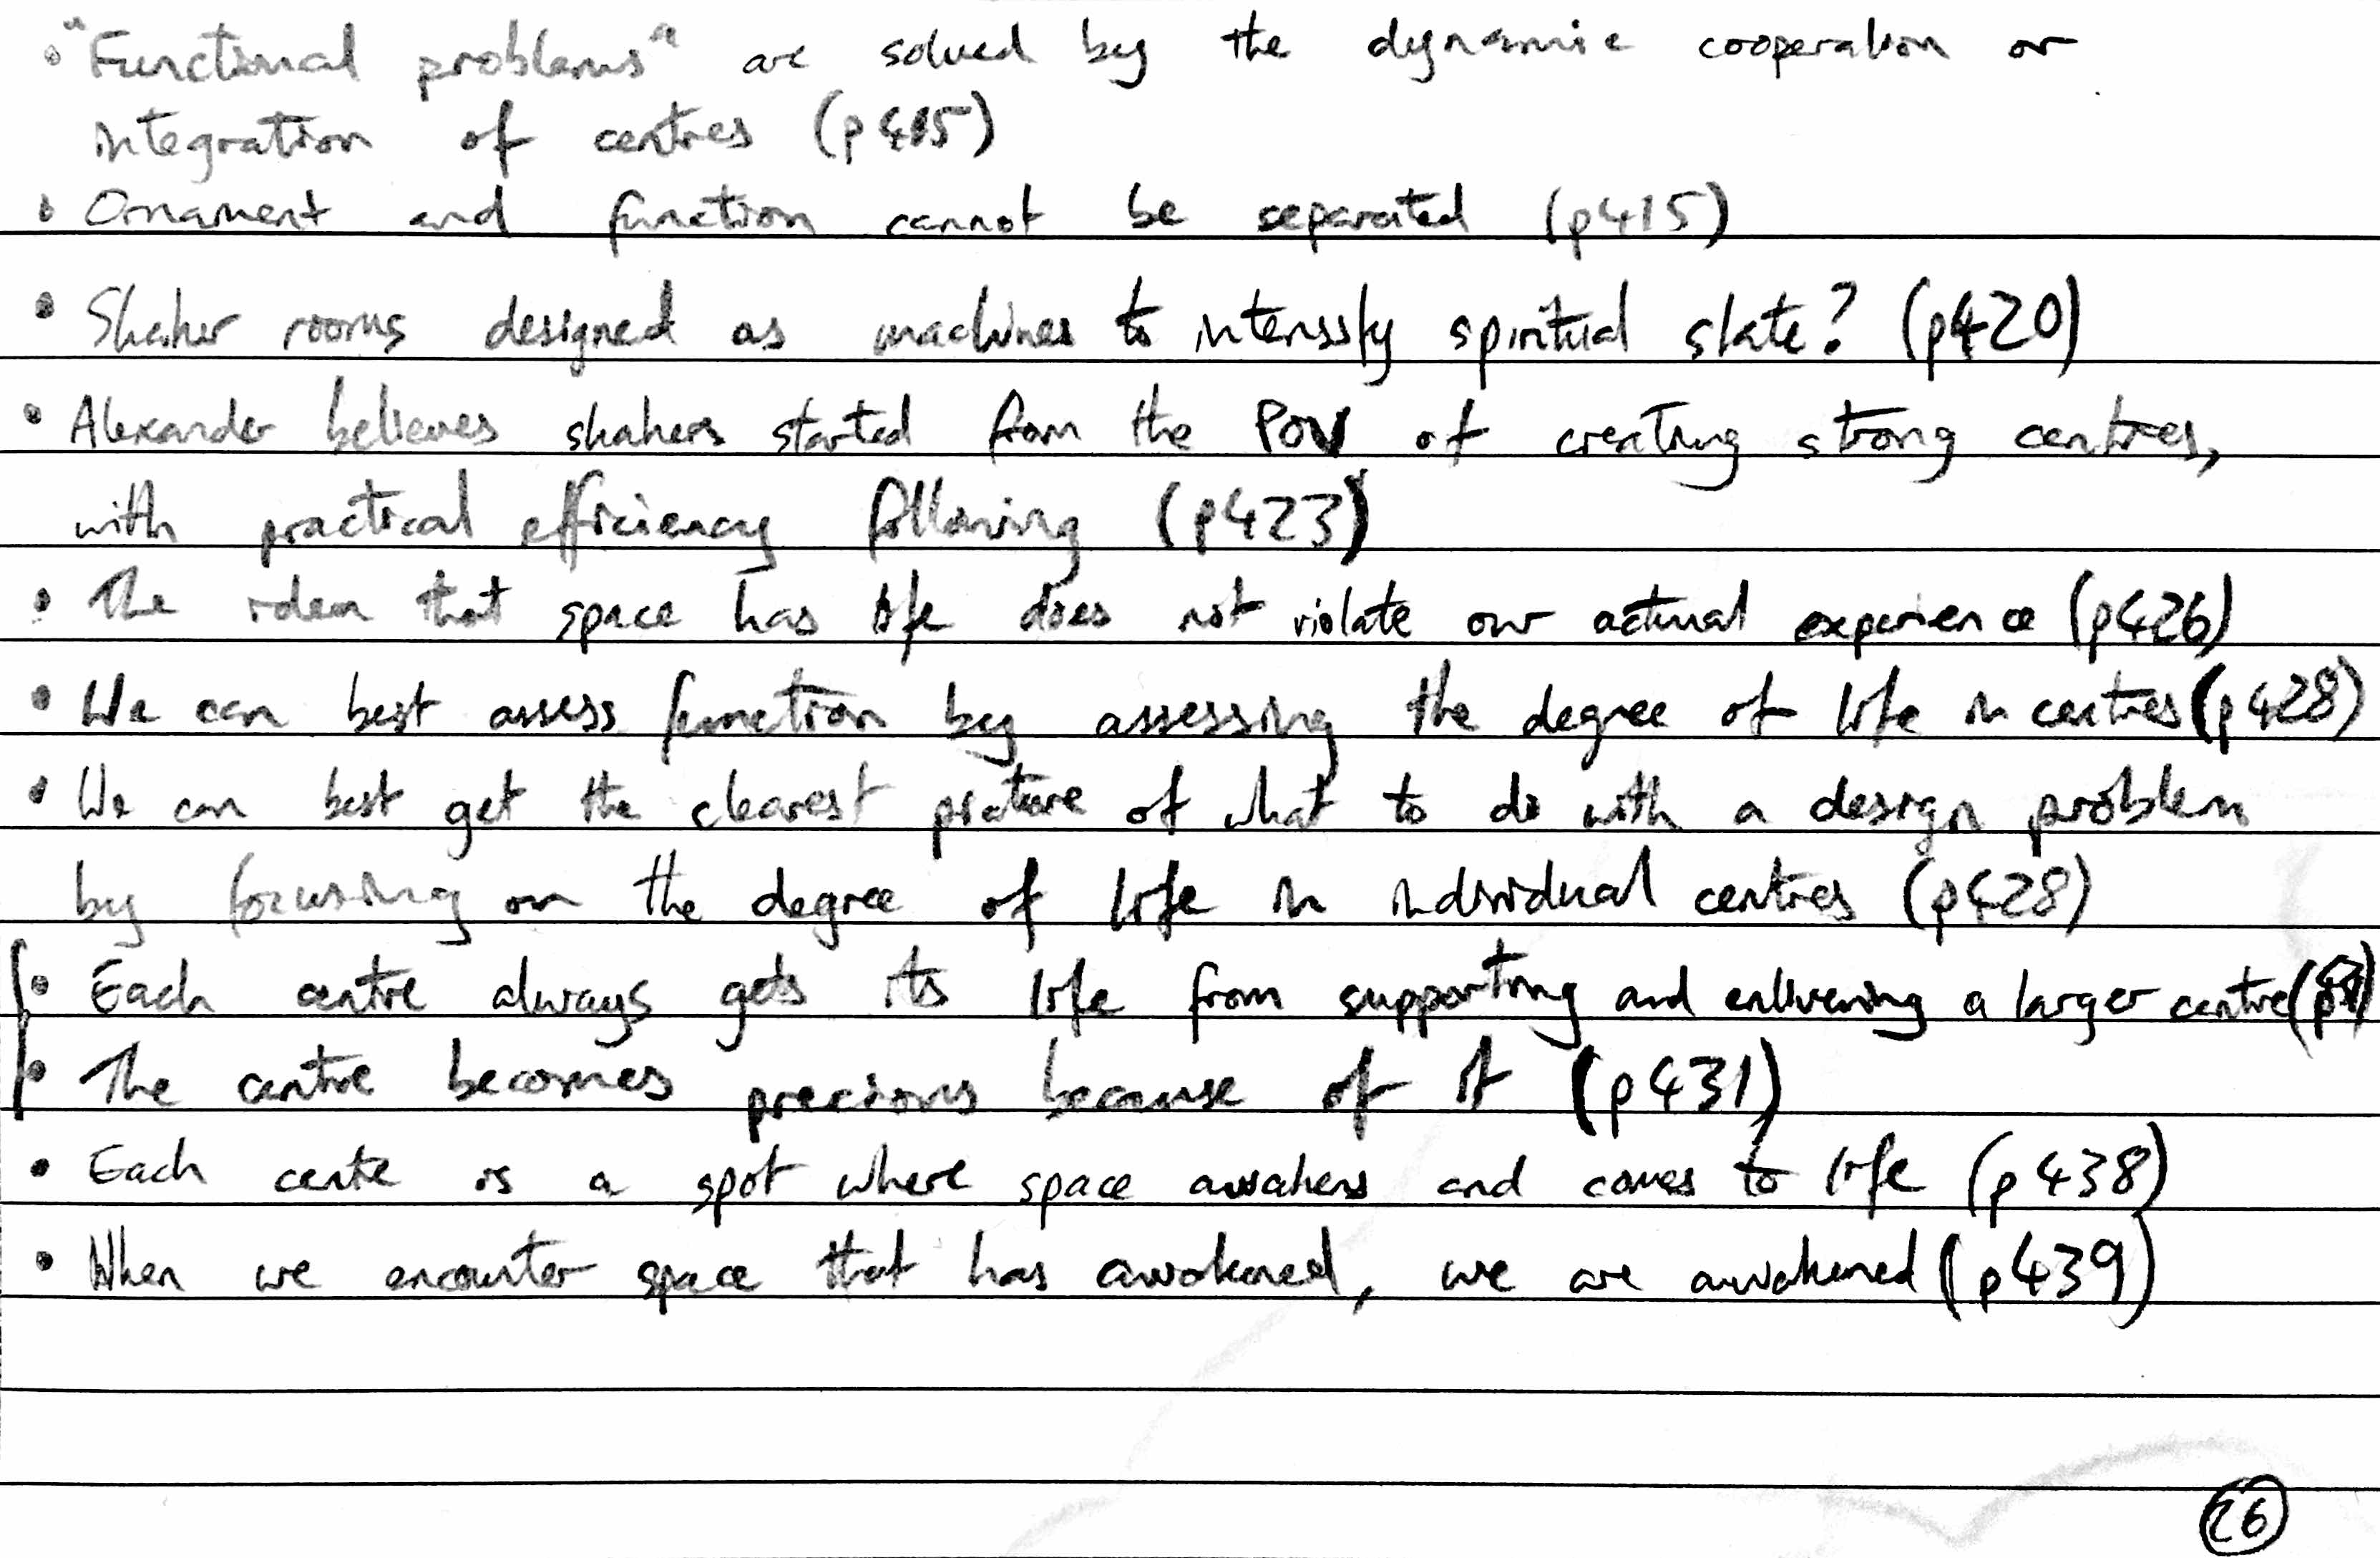 • "Functional problems" are solved by the dynamic cooperation or
integration of centres (p415)
• Ornament and function cannot be separated (p415)
• Shaker rooms designed as machines to intenssfy spiritual state? (p420)
• Alexander believes shakers started from the POV of creating strong centres,
with practical efficiency following (p423)
• The idea that space has life does not violate our actual experience (p426)
• We can best assess function by assessing the degree of life in centres (p428)
• We can best get the clearest picture of what to do with a design problem
by focusing on the degree of life in individual centres (p428)
• Each centre always gets its life from supporting and enlivening a larger centre
• The centre becomes precious because of it (p431)
• Each centre is a spot where space awakens and comes to life (p438)
• When we encounter space that has awakened, we are awakened (p439)
26